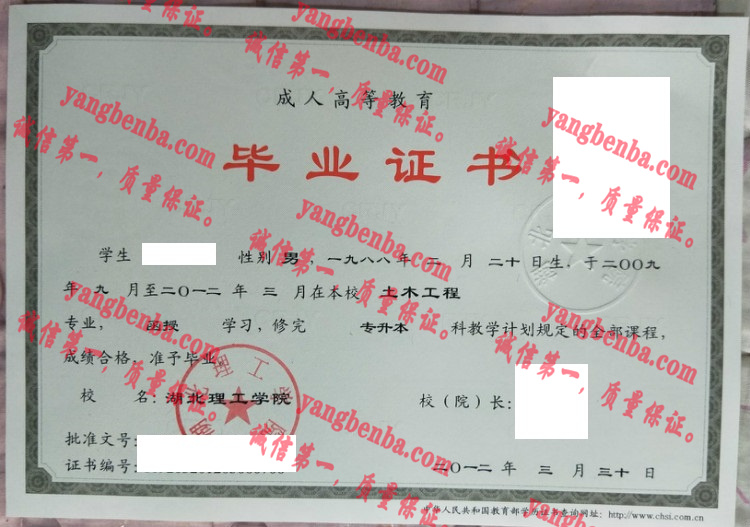 成人高等教育
毕业证书
学生 性别 男，一九八八年 二 月 二十 日生，于二〇〇九
年 九 月至二〇一二 年 三 月在本校 土木工程
专业， 函授 学习，修完 专升本 科教学计划规定的全部课程，
成绩合格，准予毕业。
校 名：湖北理工学院
校（院）长：
批准文号：
证书编号：
二〇一二 年 三 月 三十 日
中华人民共和国教育部学历证书查询网址：http://www.chsi.com.cn
yangbenba.com
诚信第一，质量保证。
yangbenba.com
诚信第一，质量保证。
yangbenba.com
诚信第一，质量保证。
yangbenba.com
诚信第一，质量保证。
yangbenba.com
诚信第一，质量保证。
yangbenba.com
诚信第一，质量保证。
yangbenba.com
诚信第一，质量保证。
yangbenba.com
诚信第一，质量保证。